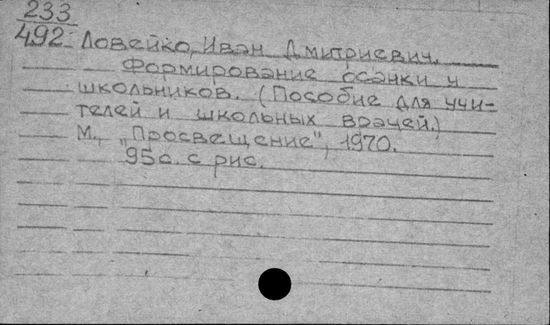 233
492 Ловейко, Иван Дмитриевич.
Формирование осанки и
школьников. (Пособие для учи-
телей и школьных врачей.)
М., "Просвещение", 1970.
95с. с рис.